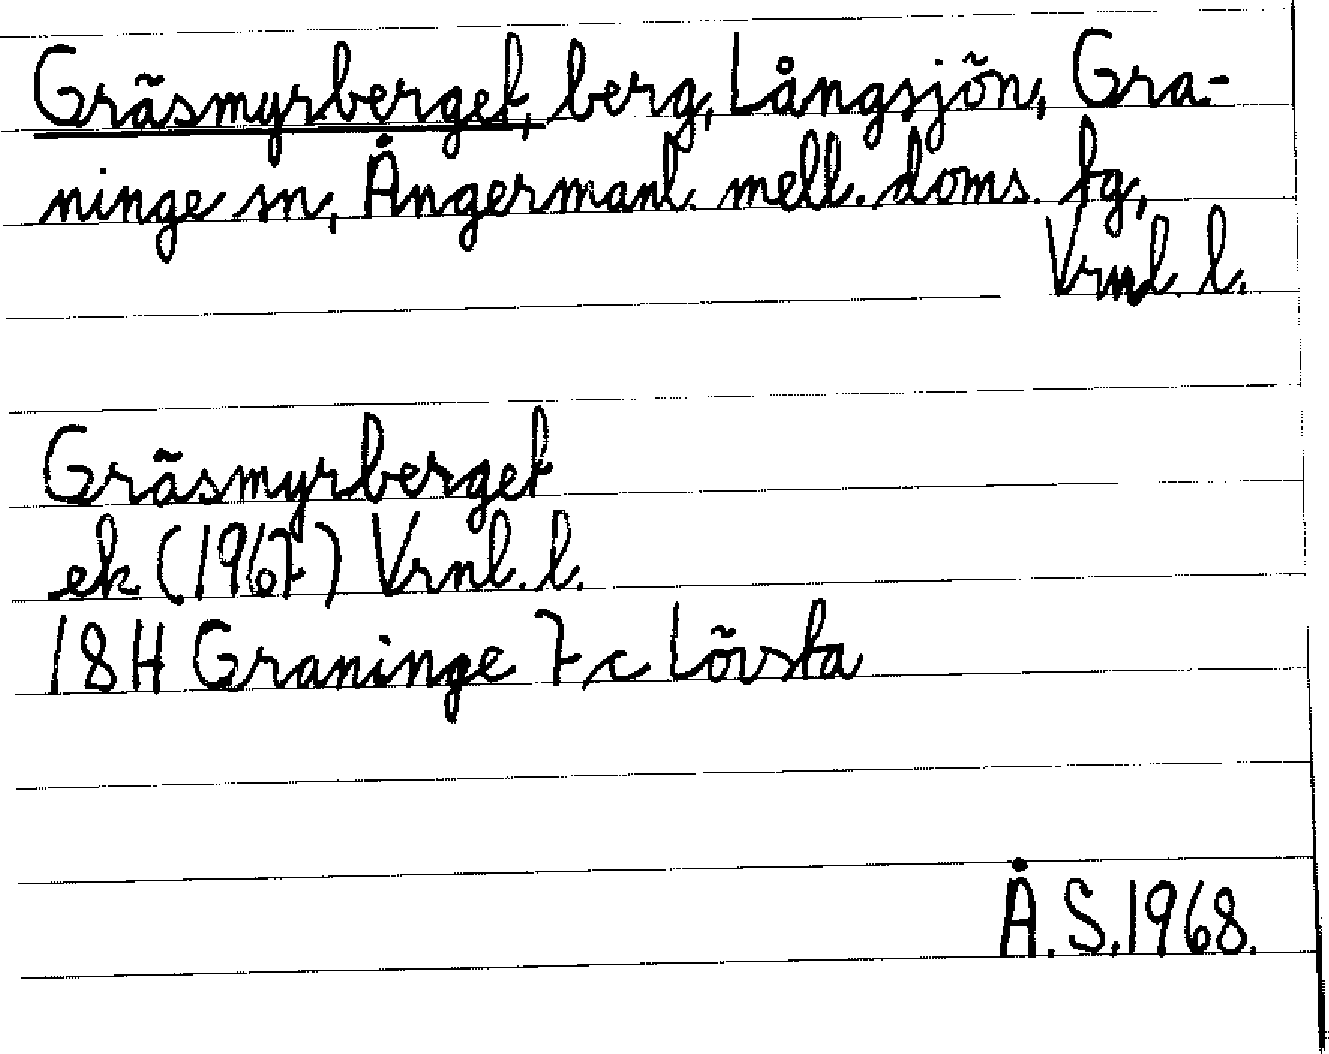 Gräsmyrberget, berg, Långsjön, Gra-
ninge sn, Ångermanl. mell. doms. tg,
Vrnl. l.
Gräsmyrberget
ek (1967) Vrnl. l.
18H Graninge 7c Lövsta
Å.S.1968.